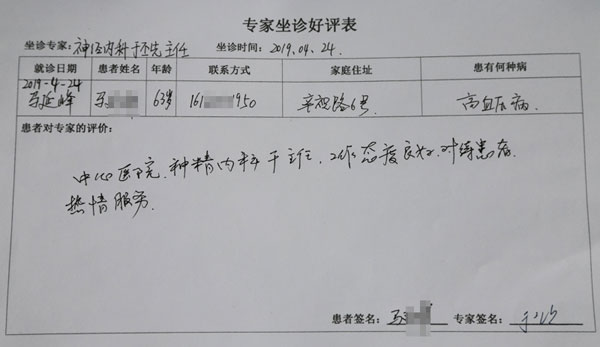 专家坐诊好评表
坐诊专家:神经内科于丕先主任 坐诊时间:2019.04.24.
就诊日期 患者姓名 年龄 联系方式 家庭住址 患有何种病
2019-4-24
马 63岁 161 1950 路6号 高血压病.
患者对专家的评价:
中心医院.神精内科于主任.工作态度良好.对待患者.
热情服务.
患者签名:马 专家签名: